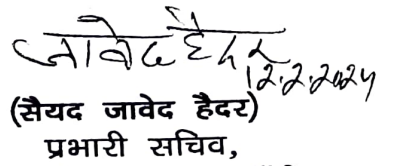 जावेद हैदर
12.2.2024
(सैयद जावेद हैदर)
प्रभारी सचिव,